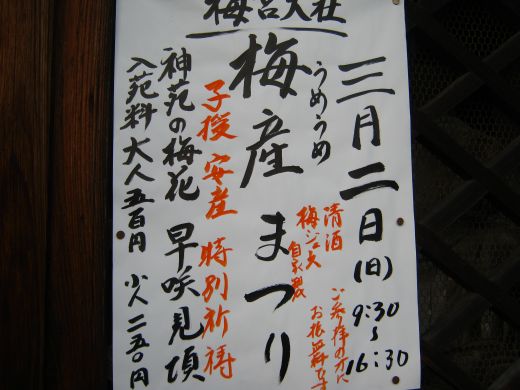 梅宮大社
三月二日(日) 9:30～16:30
うめうめ
梅産まつり
清酒
梅ジュース
自家製
ご参拝の方に
お振舞します
子授 安産 特別祈祷
神苑の梅花 早咲見頃
入苑料 大人五百円 小人二五〇円